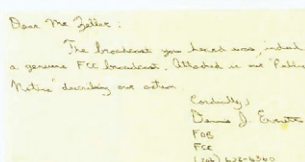 Dear Mr. Zeller:
The broadcast you heard was, indeed
a genuine FCC broadcast. Attached is our "Public
Notice" describing our action.
Cordially,
Dennis J. Everette
FOB
FCC